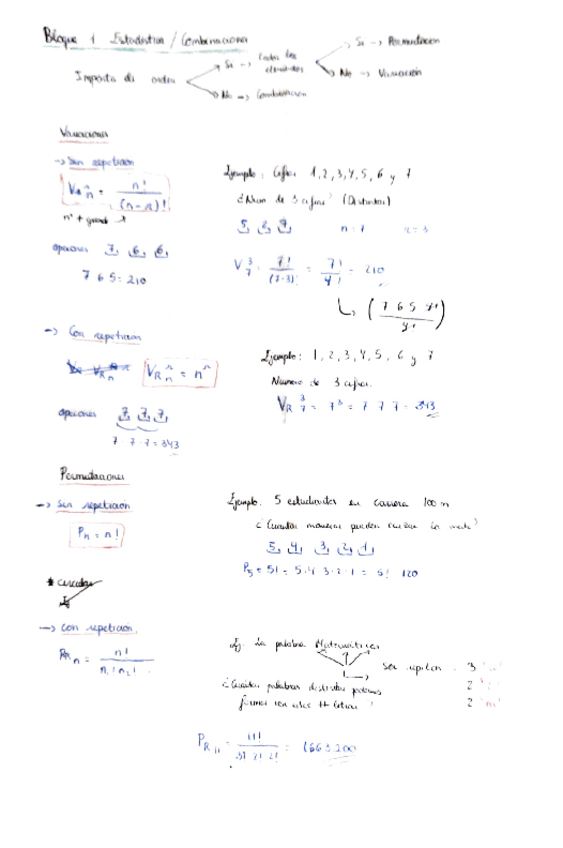 Bloque 1 Estadistica / Combinaciones
Importa el orden
Si → Todos los elementos
Si → Permutacion
No → Variación
No → Combinacion
Variaciones
→ Sin repeticion
n!
(n-n)!
nº + grande
opciones 7, 6, 6,
7 6 5 = 210
Ejemplo: Cifras 1, 2, 3, 4, 5, 6 y 7
3 cifras? (Distintas)
n = 7
V 3 7 = 7! / (7-3)! = 7! / 4! = 210
( 7 6 5 4! / 4! )
→ Con repeticion
VR n n = nⁿ
opciones 7, 7, 7,
7 7 · 7 = 343
Ejemplo: 1, 2, 3, 4, 5, 6 y 7
Numero de 3 cifras.
VR 3 7 = 7³ = 7 7 7 = 343
Permutaciones
→ Sin repeticion
Pn = n!
Ejemplo. 5 estudiantes en carrera 100 m
¿Cuantas maneras pueden cruzar la meta?
5, 4, 3, 2, 1,
P5 = 5! = 5·4 3·2·1 = 5! 120
→ con repeticion
n!
n1! n2!
Ej. La palabra Matematicas
se repiten 3
2
2 "m"
¿Cuantas palabras distintas podemos
formar con estas 11 letras?
PR 11 = 11! / 3! 2! 2! = 1663200